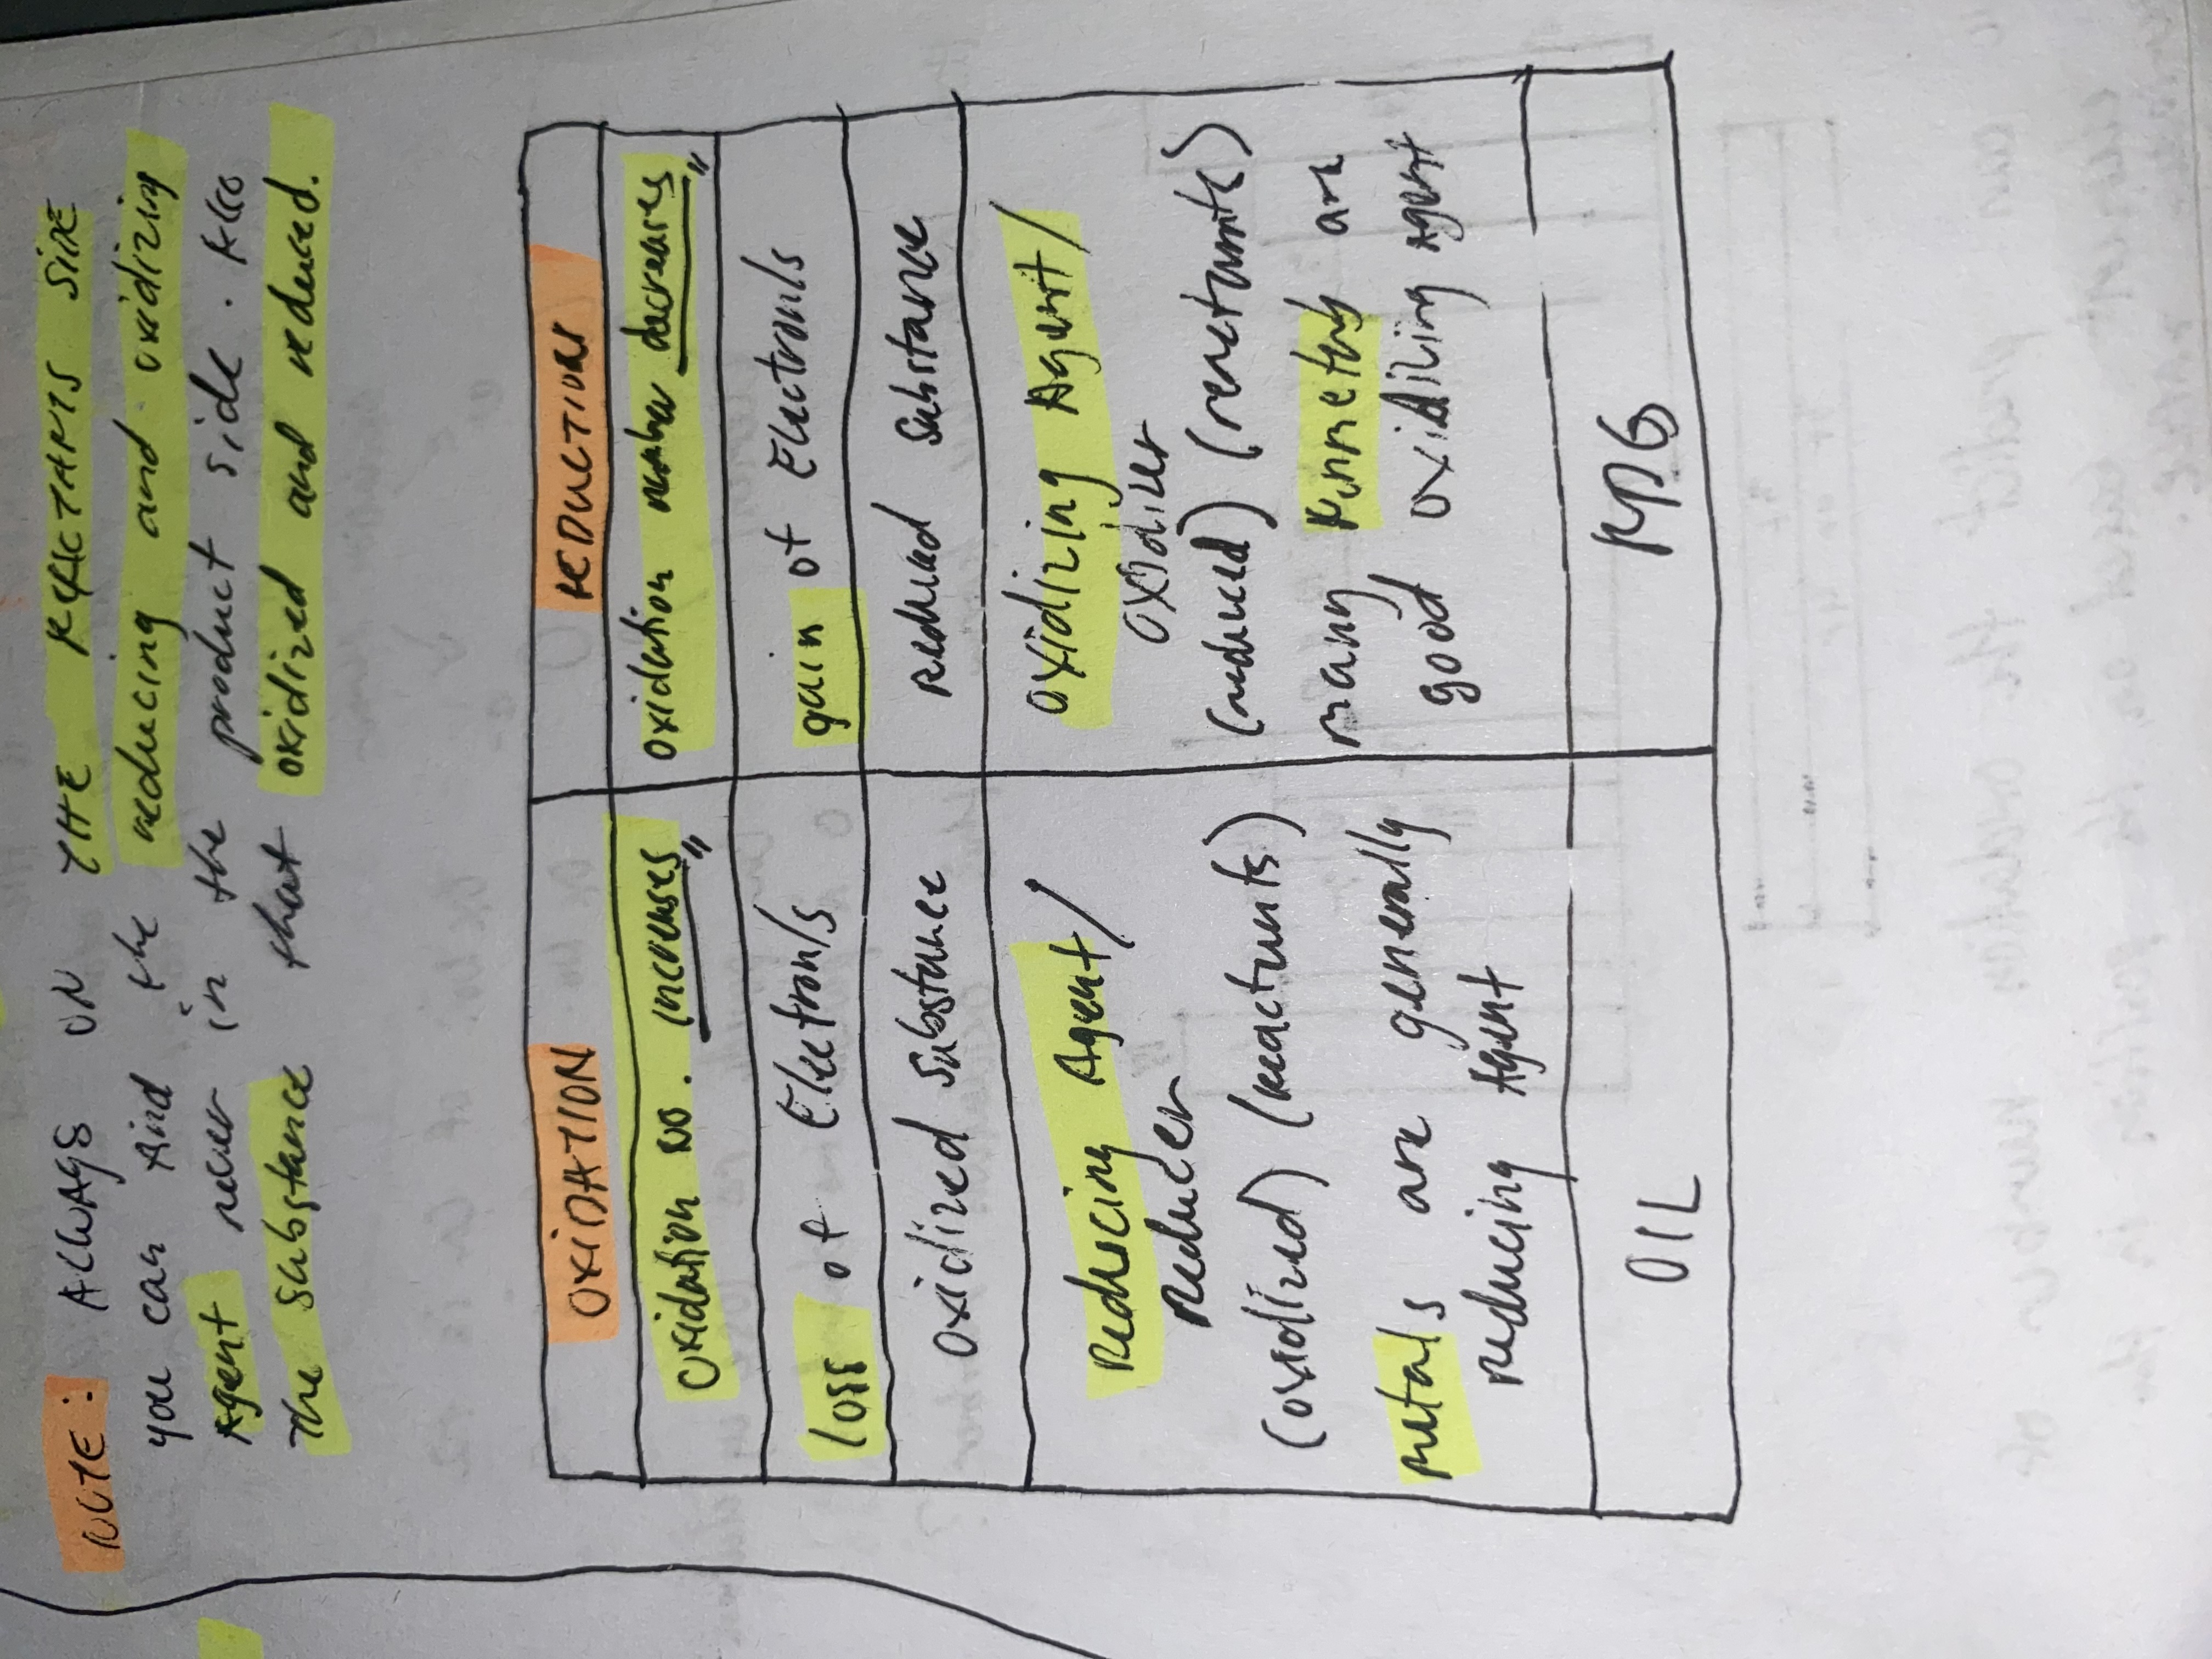 NOTE: ALWAYS ON THE REACTANTS SIDE
you can find the reducing and oxidizing
Agent never in the product side. Also
the substance that oxidized and reduced.
OXIDATION REDUCTION
Oxidation no. increases" oxidation number decreases"
loss of Electron/s gain of Electron/s
oxidized substance Reduced substance
Reducing Agent/ oxidizing Agent/
Reducer oxidizer
(oxidized) (reactants) (reduced) (reactants)
metals are generally many nonmetals are
reducing Agent good oxidizing agent
OIL RIG